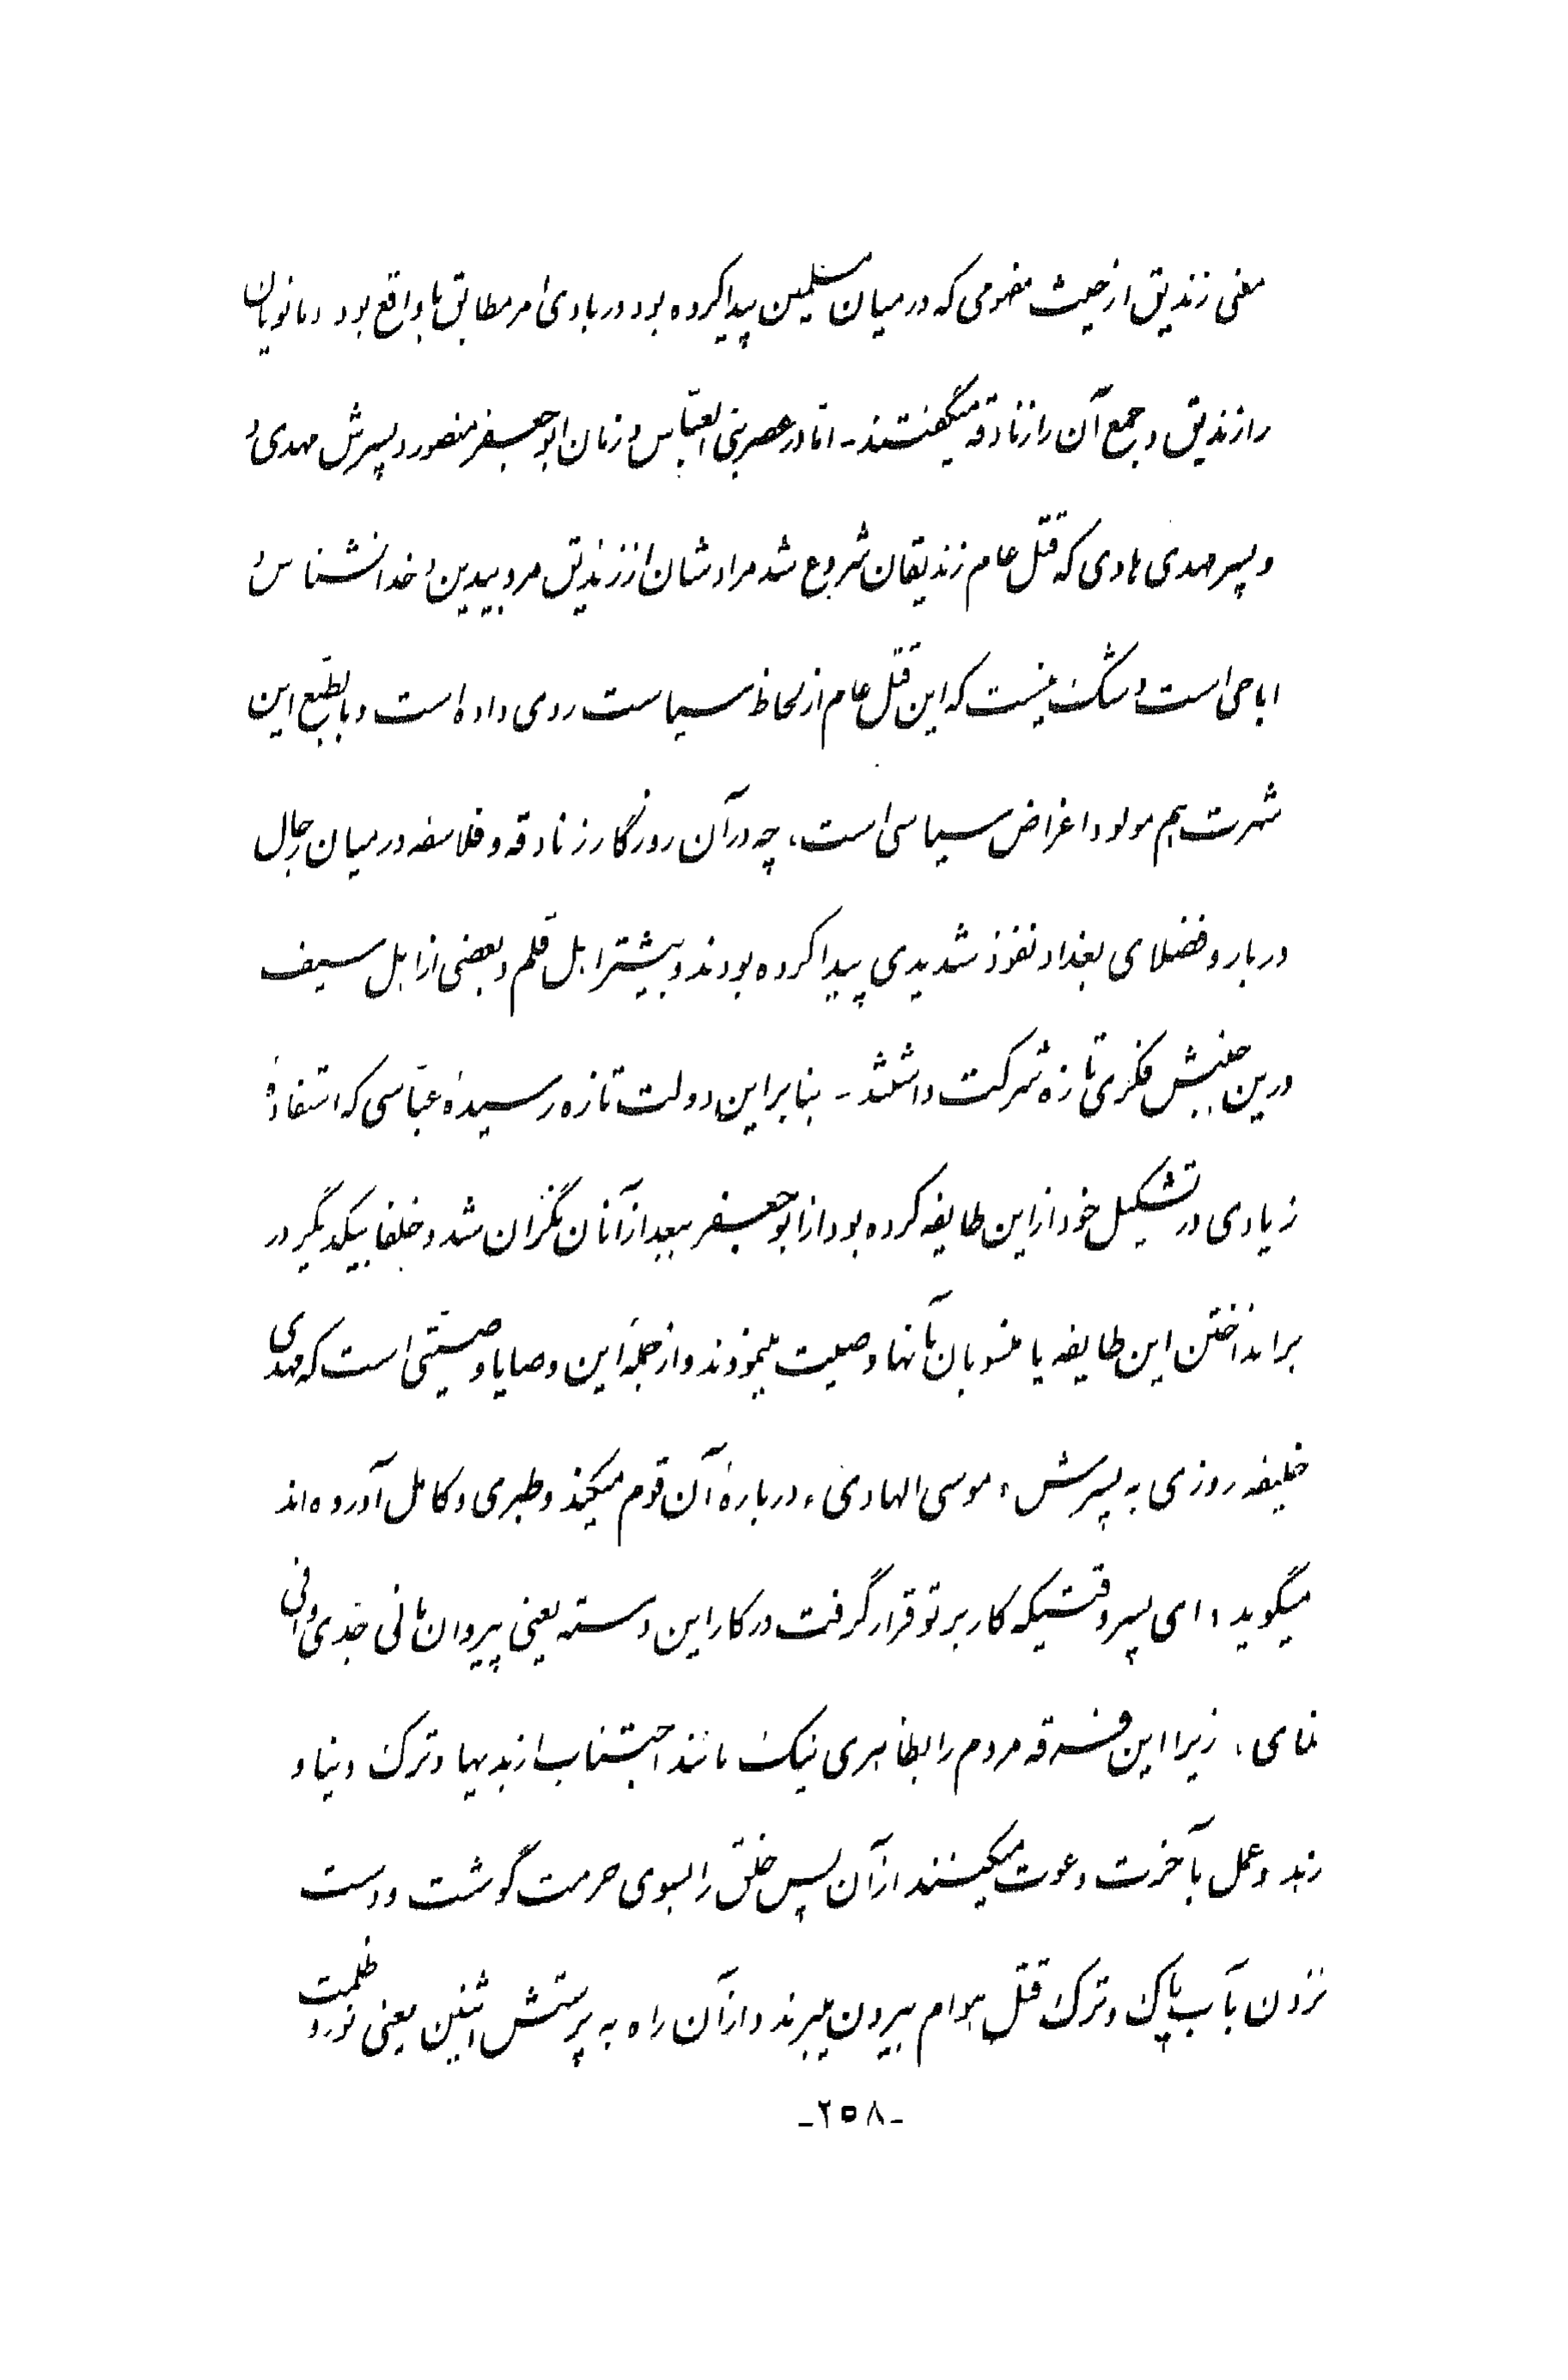 معنی زندیق از حیث مفهومی که در میان مسلمین پیدا کرده بود در بادی امر مطابق با واقع بود و مانویان
را زندیق و جمع آن را زنادقه میگفتند - امّا در عصر بنی العبّاس و زمان ابوجعفر منصور و پسرش مهدی و
و پسر مهدی هادی که قتل عام زندیقان شروع شد مرادشان از زندیق مرد بیدین و خدا نشناس و
اباحی است و شک نیست که این قتل عام از لحاظ سیاست روی داده است و بالطبع این
شهرت هم مولود اغراض سیاسی است، چه در آن روزگار زنادقه و فلاسفه در میان رجال
دربار و فضلای بغداد نفوذ شدیدی پیدا کرده بودند و بیشتر اهل قلم و بعضی از اهل سیف
درین جنبش فکری تازه شرکت داشتند - بنابراین دولت تازه رسیدهٔ عبّاسی که استفادهٔ
زیادی در تشکیل خود از این طایفه کرده بود از ابوجعفر ببعد از آنان نگران شد و خلفا بیکدیگر در
برانداختن این طایفه یا منسوبان بآنها وصیت مینمودند و از جملهٔ این وصایا وصیّتی است که مهدی
خلیفه روزی به پسرش «موسی الهادی» دربارهٔ آن قوم میکند و طبری و کامل آورده‌اند
میگوید «ای پسر وقتیکه کار بر تو قرار گرفت در کار این دسته یعنی پیروان مانی جدی وافی
نمای، زیرا این فرقه مردم را بظاهری نیک مانند اجتناب از بدیها و ترک دنیا و
زهد و عمل بآخرت دعوت میکنند از آن پس خلق را بسوی حرمت گوشت و دست
نزدن بآب پاک و ترک قتل هوام بیرون میبرند و از آن راه به پرستش اثنین یعنی نور و ظلمت
-۲۵۸-